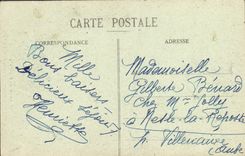 CARTE POSTALE
CORRESPONDANCE
ADRESSE
Mille
Bons baisers
Délicieux séjour
Henriette
Mademoiselle
Gilberte Bénard
chez Mme Jolles
à Nesle-la-Reposte
p. Villenauxe
(Aube)